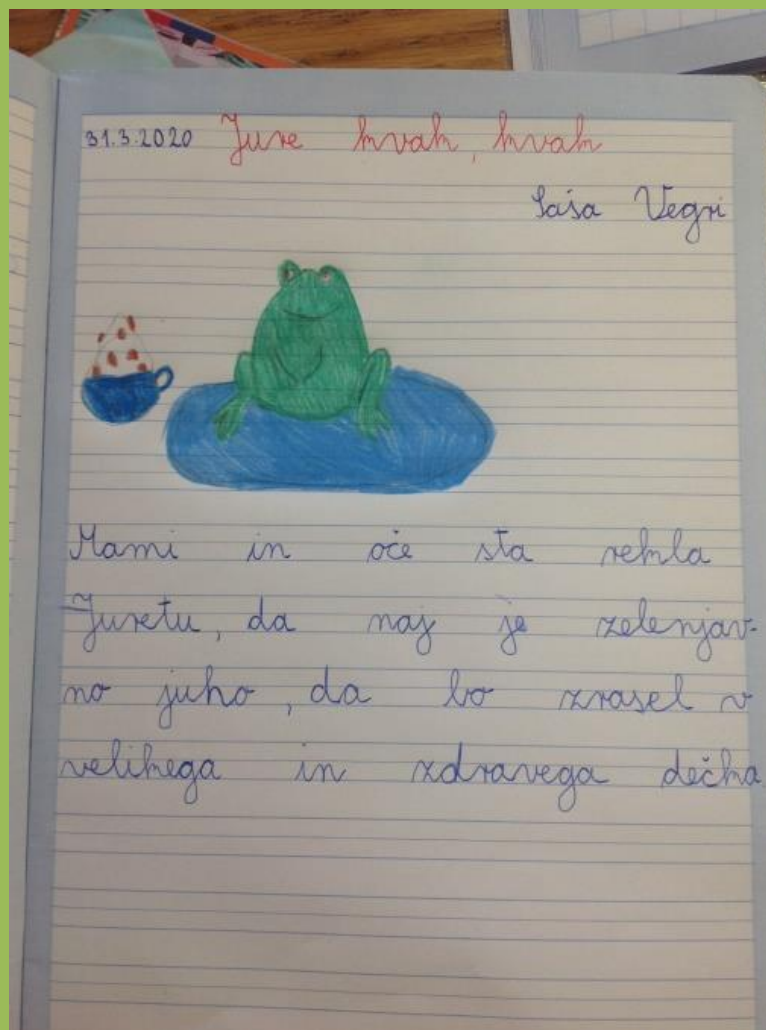 31.3.2020 Jure kvak, kvak
Saša Vegri
Mami in oče sta rekla
Juretu, da naj je zelenjav-
no juho, da bo zrasel v
velikega in zdravega dečka